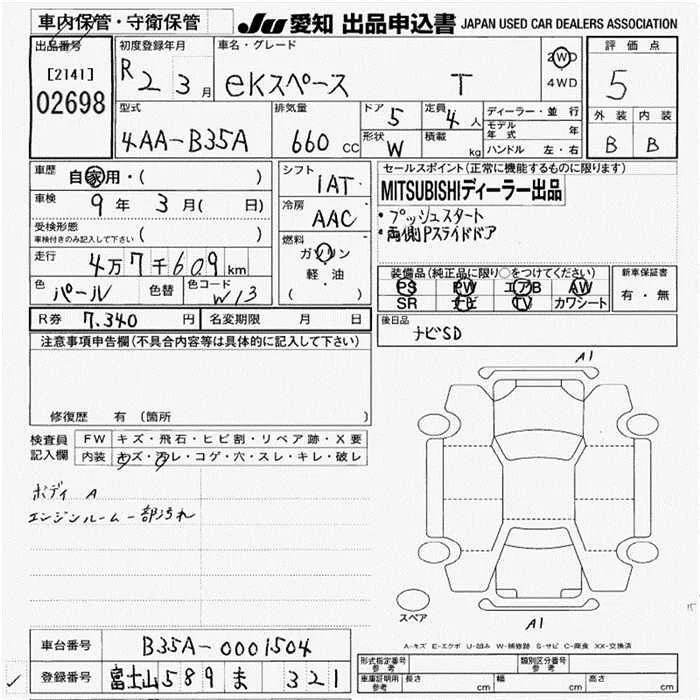 車内保管・守衛保管
JU 愛知 出品申込書 JAPAN USED CAR DEALERS ASSOCIATION
出品番号
[2141]
02698
初度登録年月
R 2 3月
車名・グレード
eKスペース T
2WD
4WD
評価点
5
外装 内装
B B
型式
4AA-B35A
排気量
660 cc
ドア 5
定員 4人
形状 W
積載 kg
ディーラー・並行
モデル年式 年
ハンドル 左・右
車歴 自家用・( )
車検 9年 3月( 日)
受検形態
車検付きのみ記入して下さい ( )
走行 4万7千609km
色 パール 色替 色コード W13
シフト
IAT
冷房
AAC
燃料
ガソリン
軽・油
( )
セールスポイント(正常に機能するものに限ります)
MITSUBISHIディーラー出品
・プッシュスタート
・両側Pスライドドア
装備品(純正品に限り○をつけてください)
PS PW エアB AW
SR ナビ TV カワシート
新車保証書
有・無
R券 7.340円 名変期限 月 日
後日品
ナビSD
注意事項申告欄(不具合内容等は具体的に記入して下さい)
修復歴 有 〔箇所 〕
検査員記入欄
FW キズ・飛石・ヒビ割・リペア跡・X要
内装 キズ・汚レ・コゲ・穴・スレ・キレ・破レ
ボディ A
エンジンルーム一部汚れ
A1
A1
スペア
A-キズ E-エクボ U-凹み W-補修跡 S-サビ C-腐食 XX-交換済
車台番号 B35A-0001504
登録番号 富士山 589 ま 321
形式指定番号 参考
類別区分番号 参考
車庫証明用 参考 長さ cm 幅 cm 高さ cm